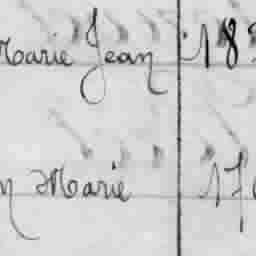 Marie Jean 18
n Marie 17